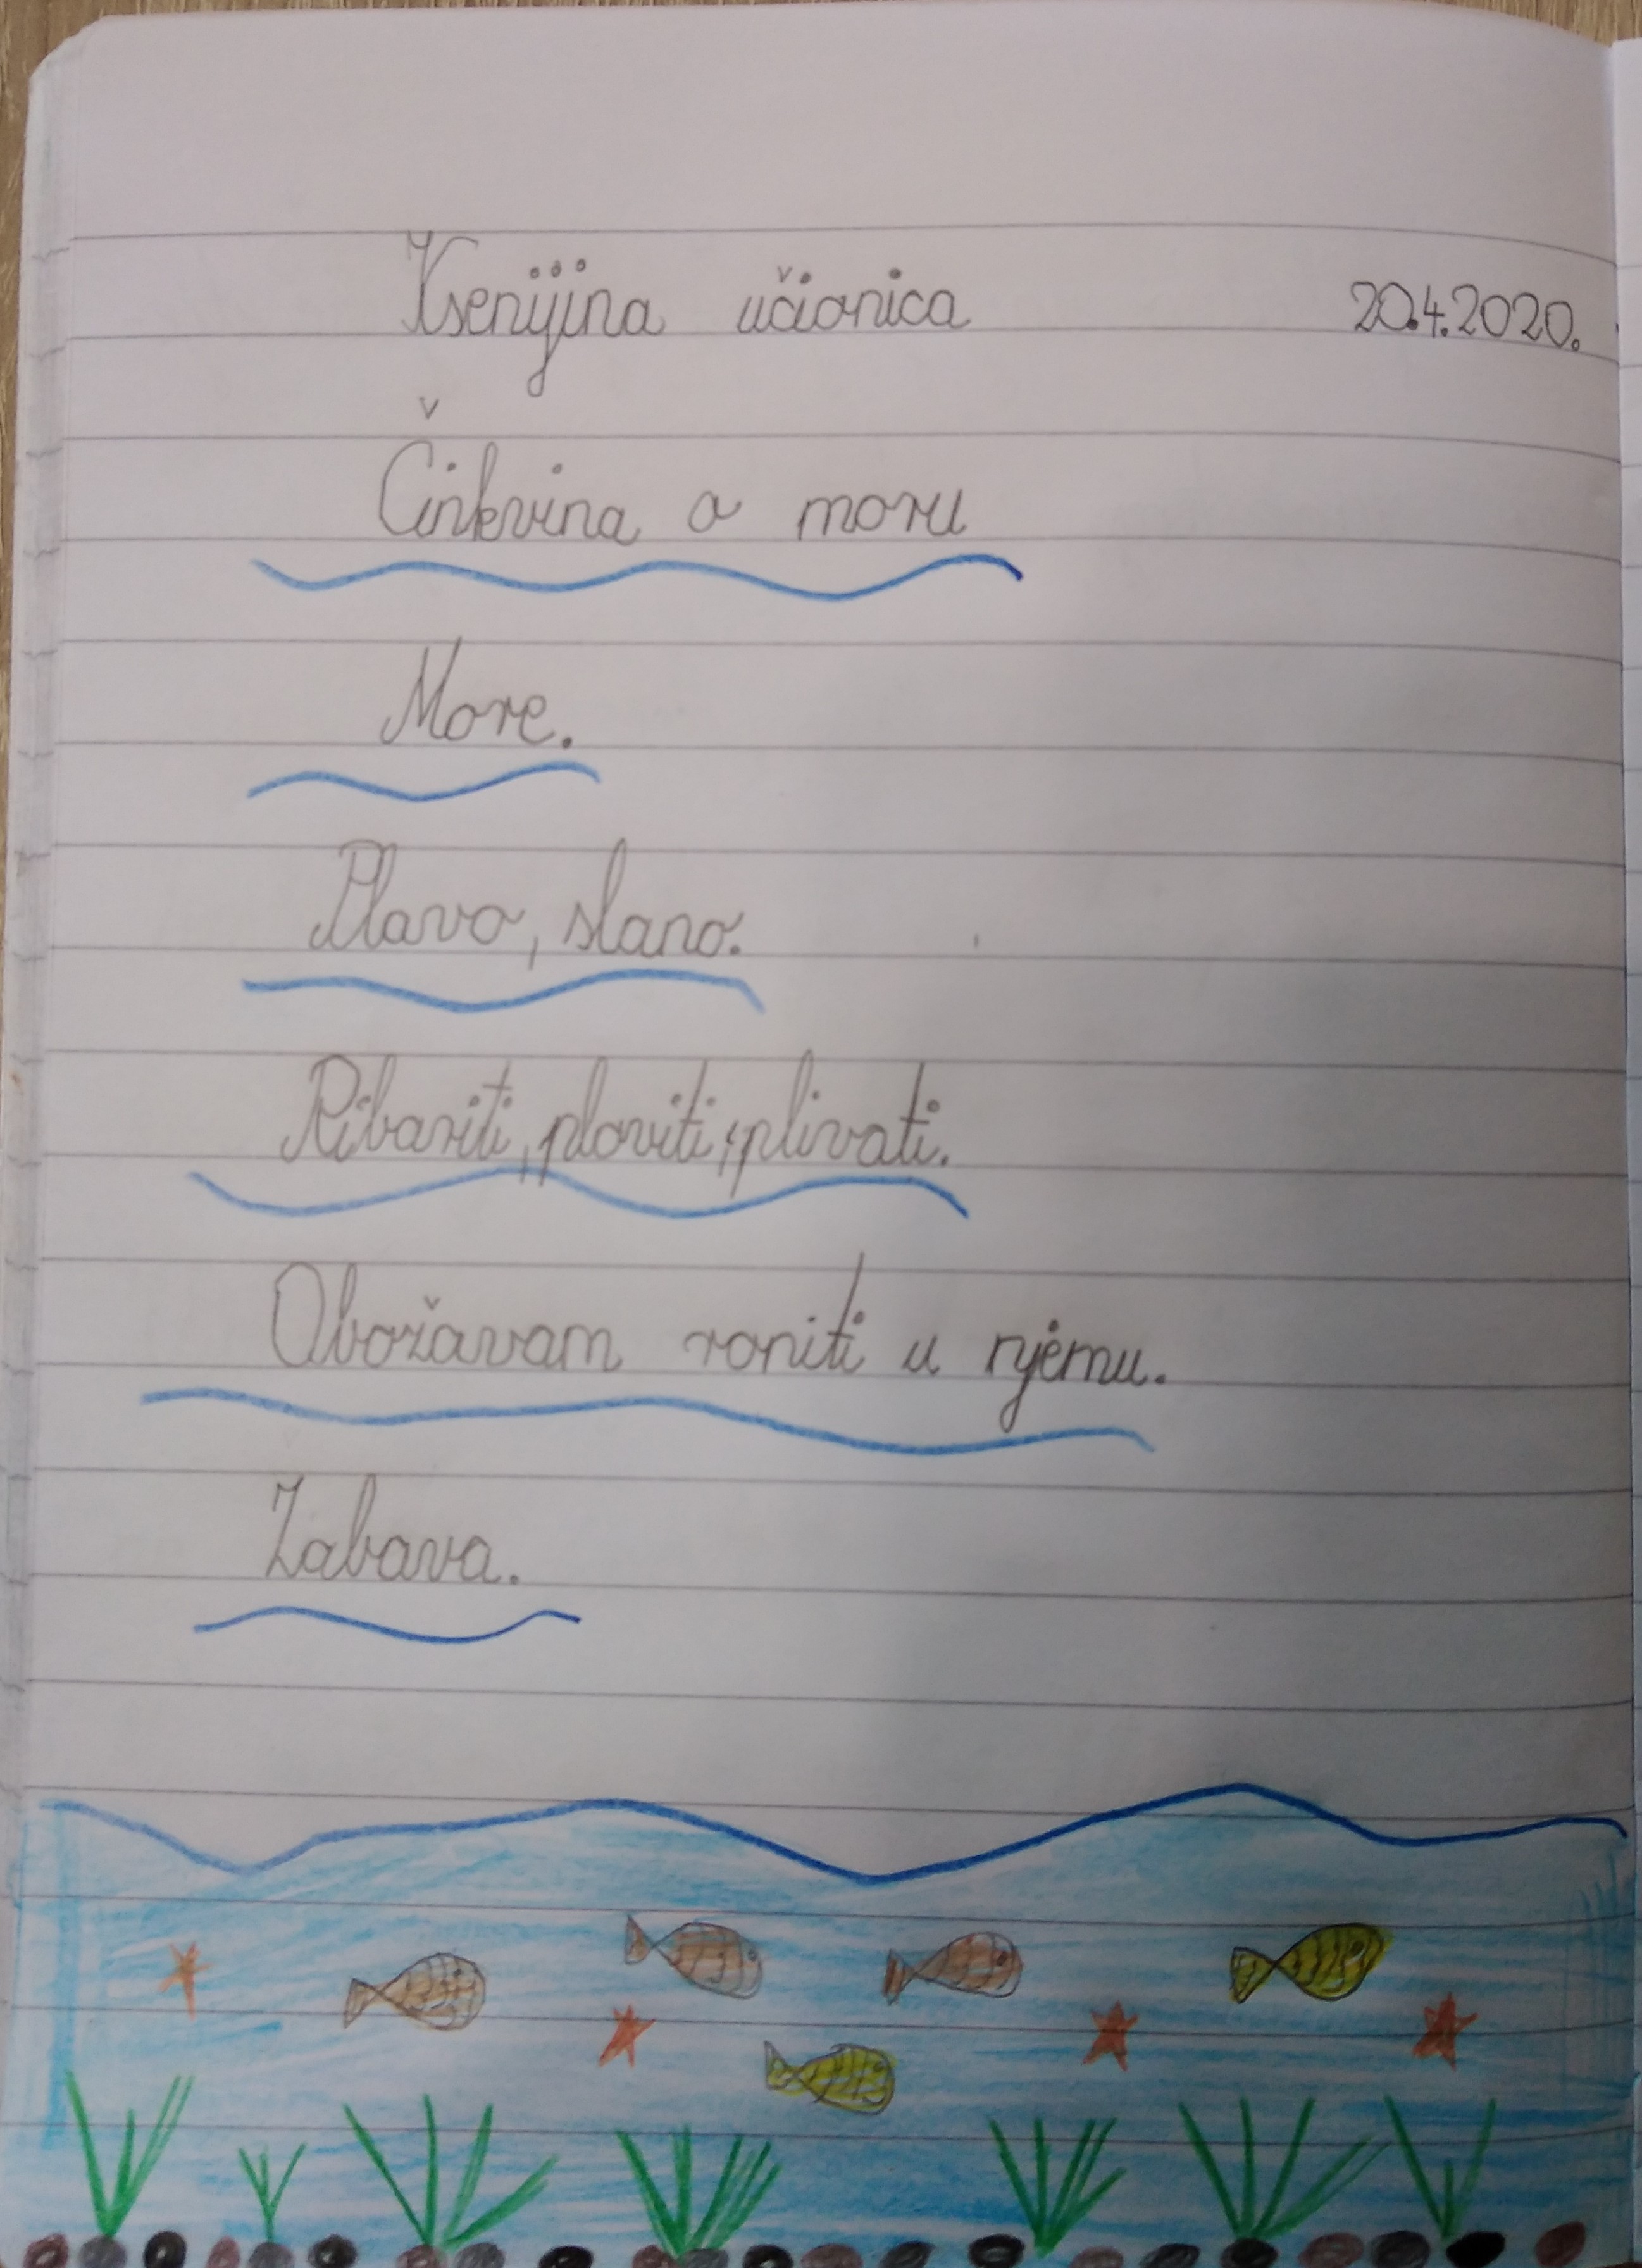 Ksenijina učionica 20.4.2020.
Činkvina o moru
More.
Plavo, slano.
Ribariti, ploviti, plivati.
Obožavam roniti u njemu.
Zabava.